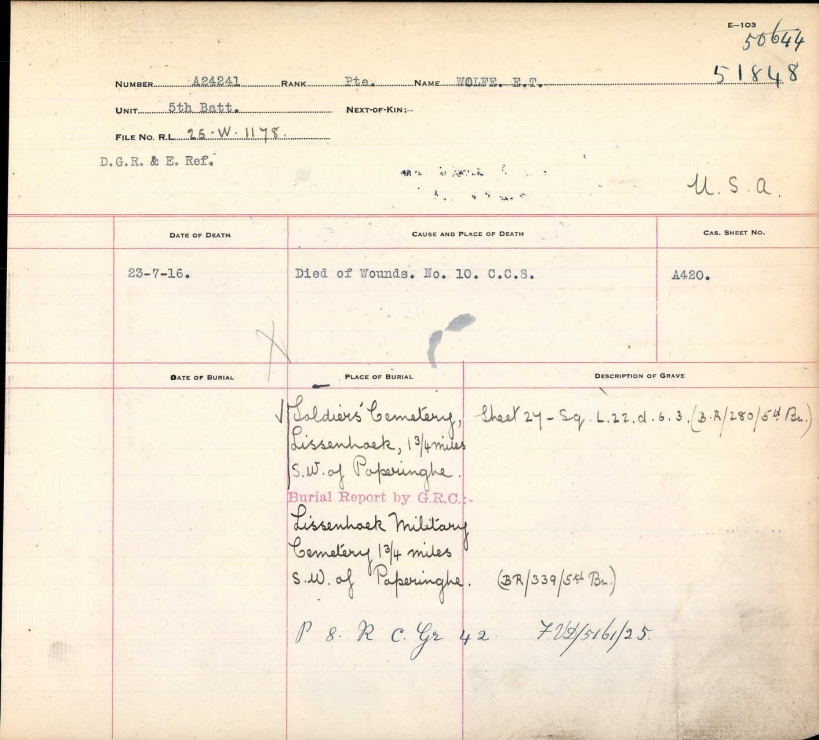 E—103
50644
51848
NUMBER A24241 RANK Pte. NAME WOLFE. E.T.
UNIT 5th Batt. NEXT-OF-KIN:—
FILE NO. R.L. 25-W-1178.
D.G.R. & E. Ref.
U.S.A.
DATE OF DEATH CAUSE AND PLACE OF DEATH CAS. SHEET NO.
23-7-16. Died of Wounds. No. 10. C.C.S. A420.
DATE OF BURIAL PLACE OF BURIAL DESCRIPTION OF GRAVE
Soldiers' Cemetery, Sheet 27 - Sq. L.22.d.6.3. (B.R/280/5th Bn.)
Lissenhoek, 1 3/4 miles
S.W. of Poperinghe.
Burial Report by G.R.C.:-
Lissenhoek Military
Cemetery 1 3/4 miles
S.W. of Poperinghe. (BR/339/5th Bn.)
P 8. R C. Gr 42